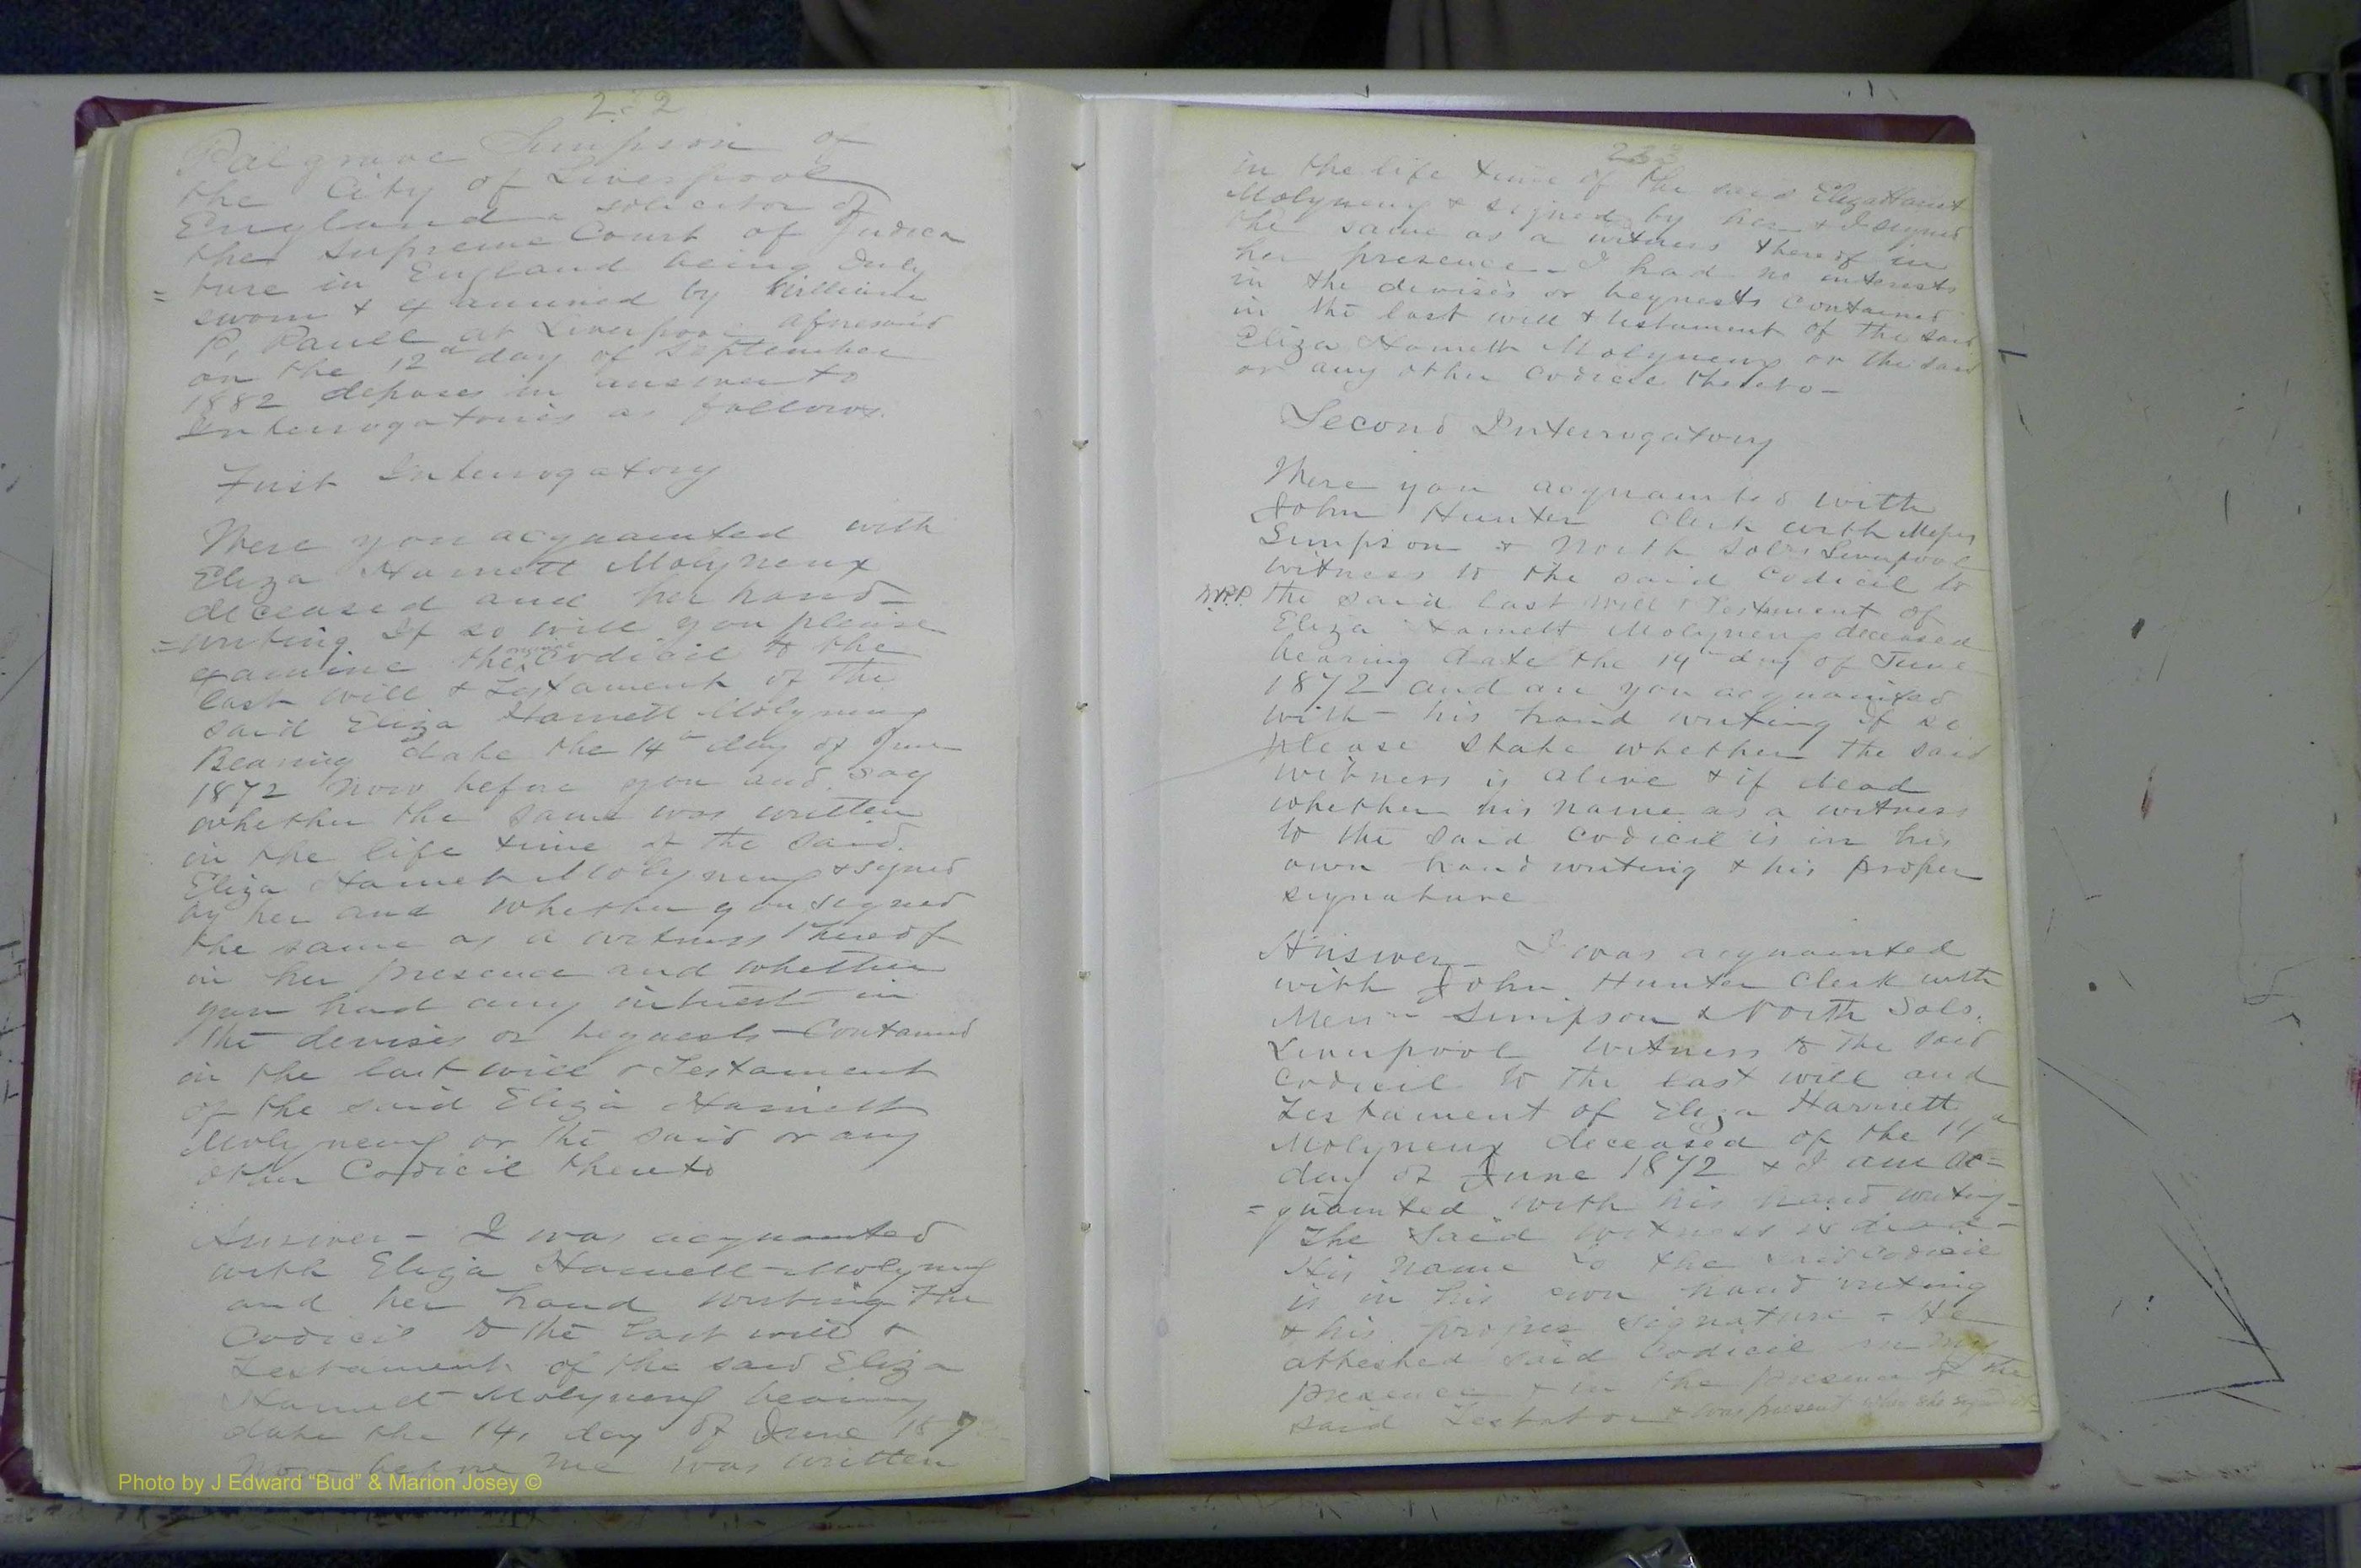 232
Palgrave Simpson of
the City of Liverpool
England a solicitor of
the Supreme Court of Judica
= ture in England being duly
sworn & examined by William
P. Paull at Liverpool aforesaid
on the 12th day of September
1882 deposes in answer to
Interrogatories as follows.
First Interrogatory
Were you acquainted with
Eliza Harnett Molyneux
deceased and her hand-
=writing If so will you please
examine the Codicil to the
last will & Testament of the
said Eliza Harnett Molyneux
Bearing date the 14th day of June
1872 now before you and say
whether the same was written
in the life time of the said
Eliza Harnett Molyneux & signed
by her and whether you signed
the same as a witness thereof
in her presence and whether
you had any interest in
the devises or bequests Contained
in the last will & Testament
of the said Eliza Harnett
Molyneux or the said or any
other Codicil thereto
Answer - I was acquainted
with Eliza Harnett Molyneux
and her hand writing The
Codicil to the last will &
Testament of the said Eliza
Harnett Molyneux bearing
date the 14, day of June 187
Now before me was written
Photo by J Edward "Bud" & Marion Josey ©
233
in the life time of the said Eliza Harnett
Molyneux & signed by her & I signed
the same as a witness thereof in
her presence - I had no interests
in the devises or bequests contained
in the last will & testament of the said
Eliza Harnett Molyneux or the said
or any other Codicil thereto -
Second Interrogatory
Were you acquainted with
John Hunter Clerk with Messrs
Simpson & North Solrs Liverpool
witness to the said Codicil to
W.P.P. the said last will & Testament of
Eliza Harnett Molyneux deceased
bearing date the 14th day of June
1872 and are you acquainted
with his hand writing if so
please state whether the said
witness is alive & if dead
whether his name as a witness
to the said Codicil is in his
own hand writing & his proper
signature
Answer - I was acquainted
with John Hunter Clerk with
Messrs Simpson & North Sols.
Liverpool witness to the said
Codicil to the last will and
Testament of Eliza Harnett
Molyneux deceased of the 14th
day of June 1872 & I am ac=
= quainted with his hand writing -
The said witness is dead -
His name to the said Codicil
is in his own hand writing
& his proper signature - He
attested said Codicil in my
presence & in the presence of the
said Testator & was present when she signed it